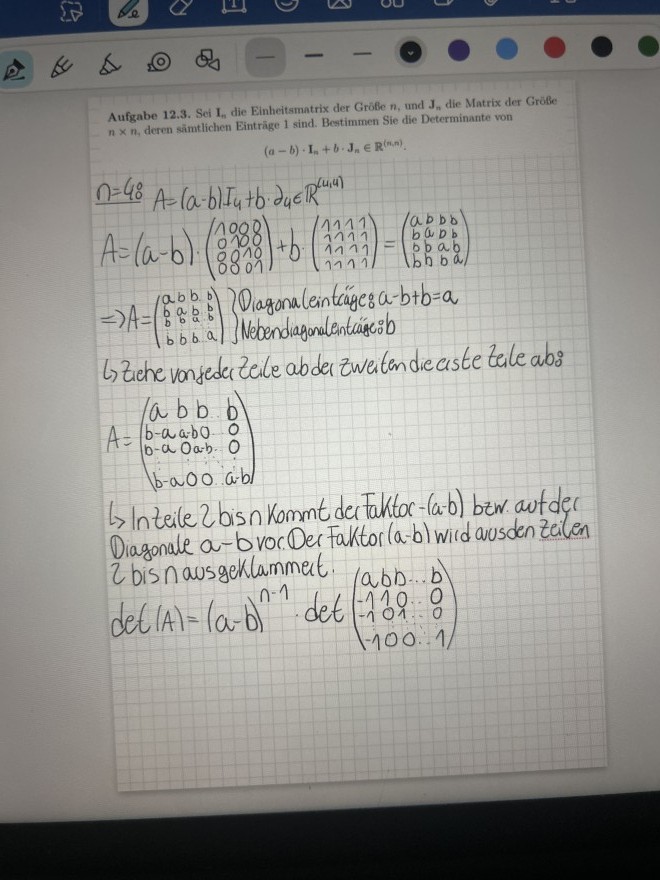 Aufgabe 12.3. Sei Iₙ die Einheitsmatrix der Größe n, und Jₙ die Matrix der Größe
n × n, deren sämtlichen Einträge 1 sind. Bestimmen Sie die Determinante von
(a − b) · Iₙ + b · Jₙ ∈ ℝ^(n,n).
n=48 A=(a-b)I₄+b·J₄∈ℝ^(4,4)
A=(a-b)·(1000 0100 0010 0001)+b·(1111 1111 1111 1111)=(abbb babb bbab bbba)
=>A=(abb..b bab..b bba..b bbb..a)} Diagonaleinträge: a-b+b=a
Nebendiagonaleinträge: b
↳ Ziehe von jeder Zeile ab der zweiten die erste Zeile ab:
A=(a b b..b b-a a-b 0..0 b-a 0 a-b..0 b-a 0 0..a-b)
↳ In Zeile 2 bis n kommt der Faktor -(a-b) bzw. auf der
Diagonale a-b vor. Der Faktor (a-b) wird aus den Zeilen
2 bis n ausgeklammert.
det(A)=(a-b)^(n-1) · det(abb...b -110..0 -101..0 -100..1)